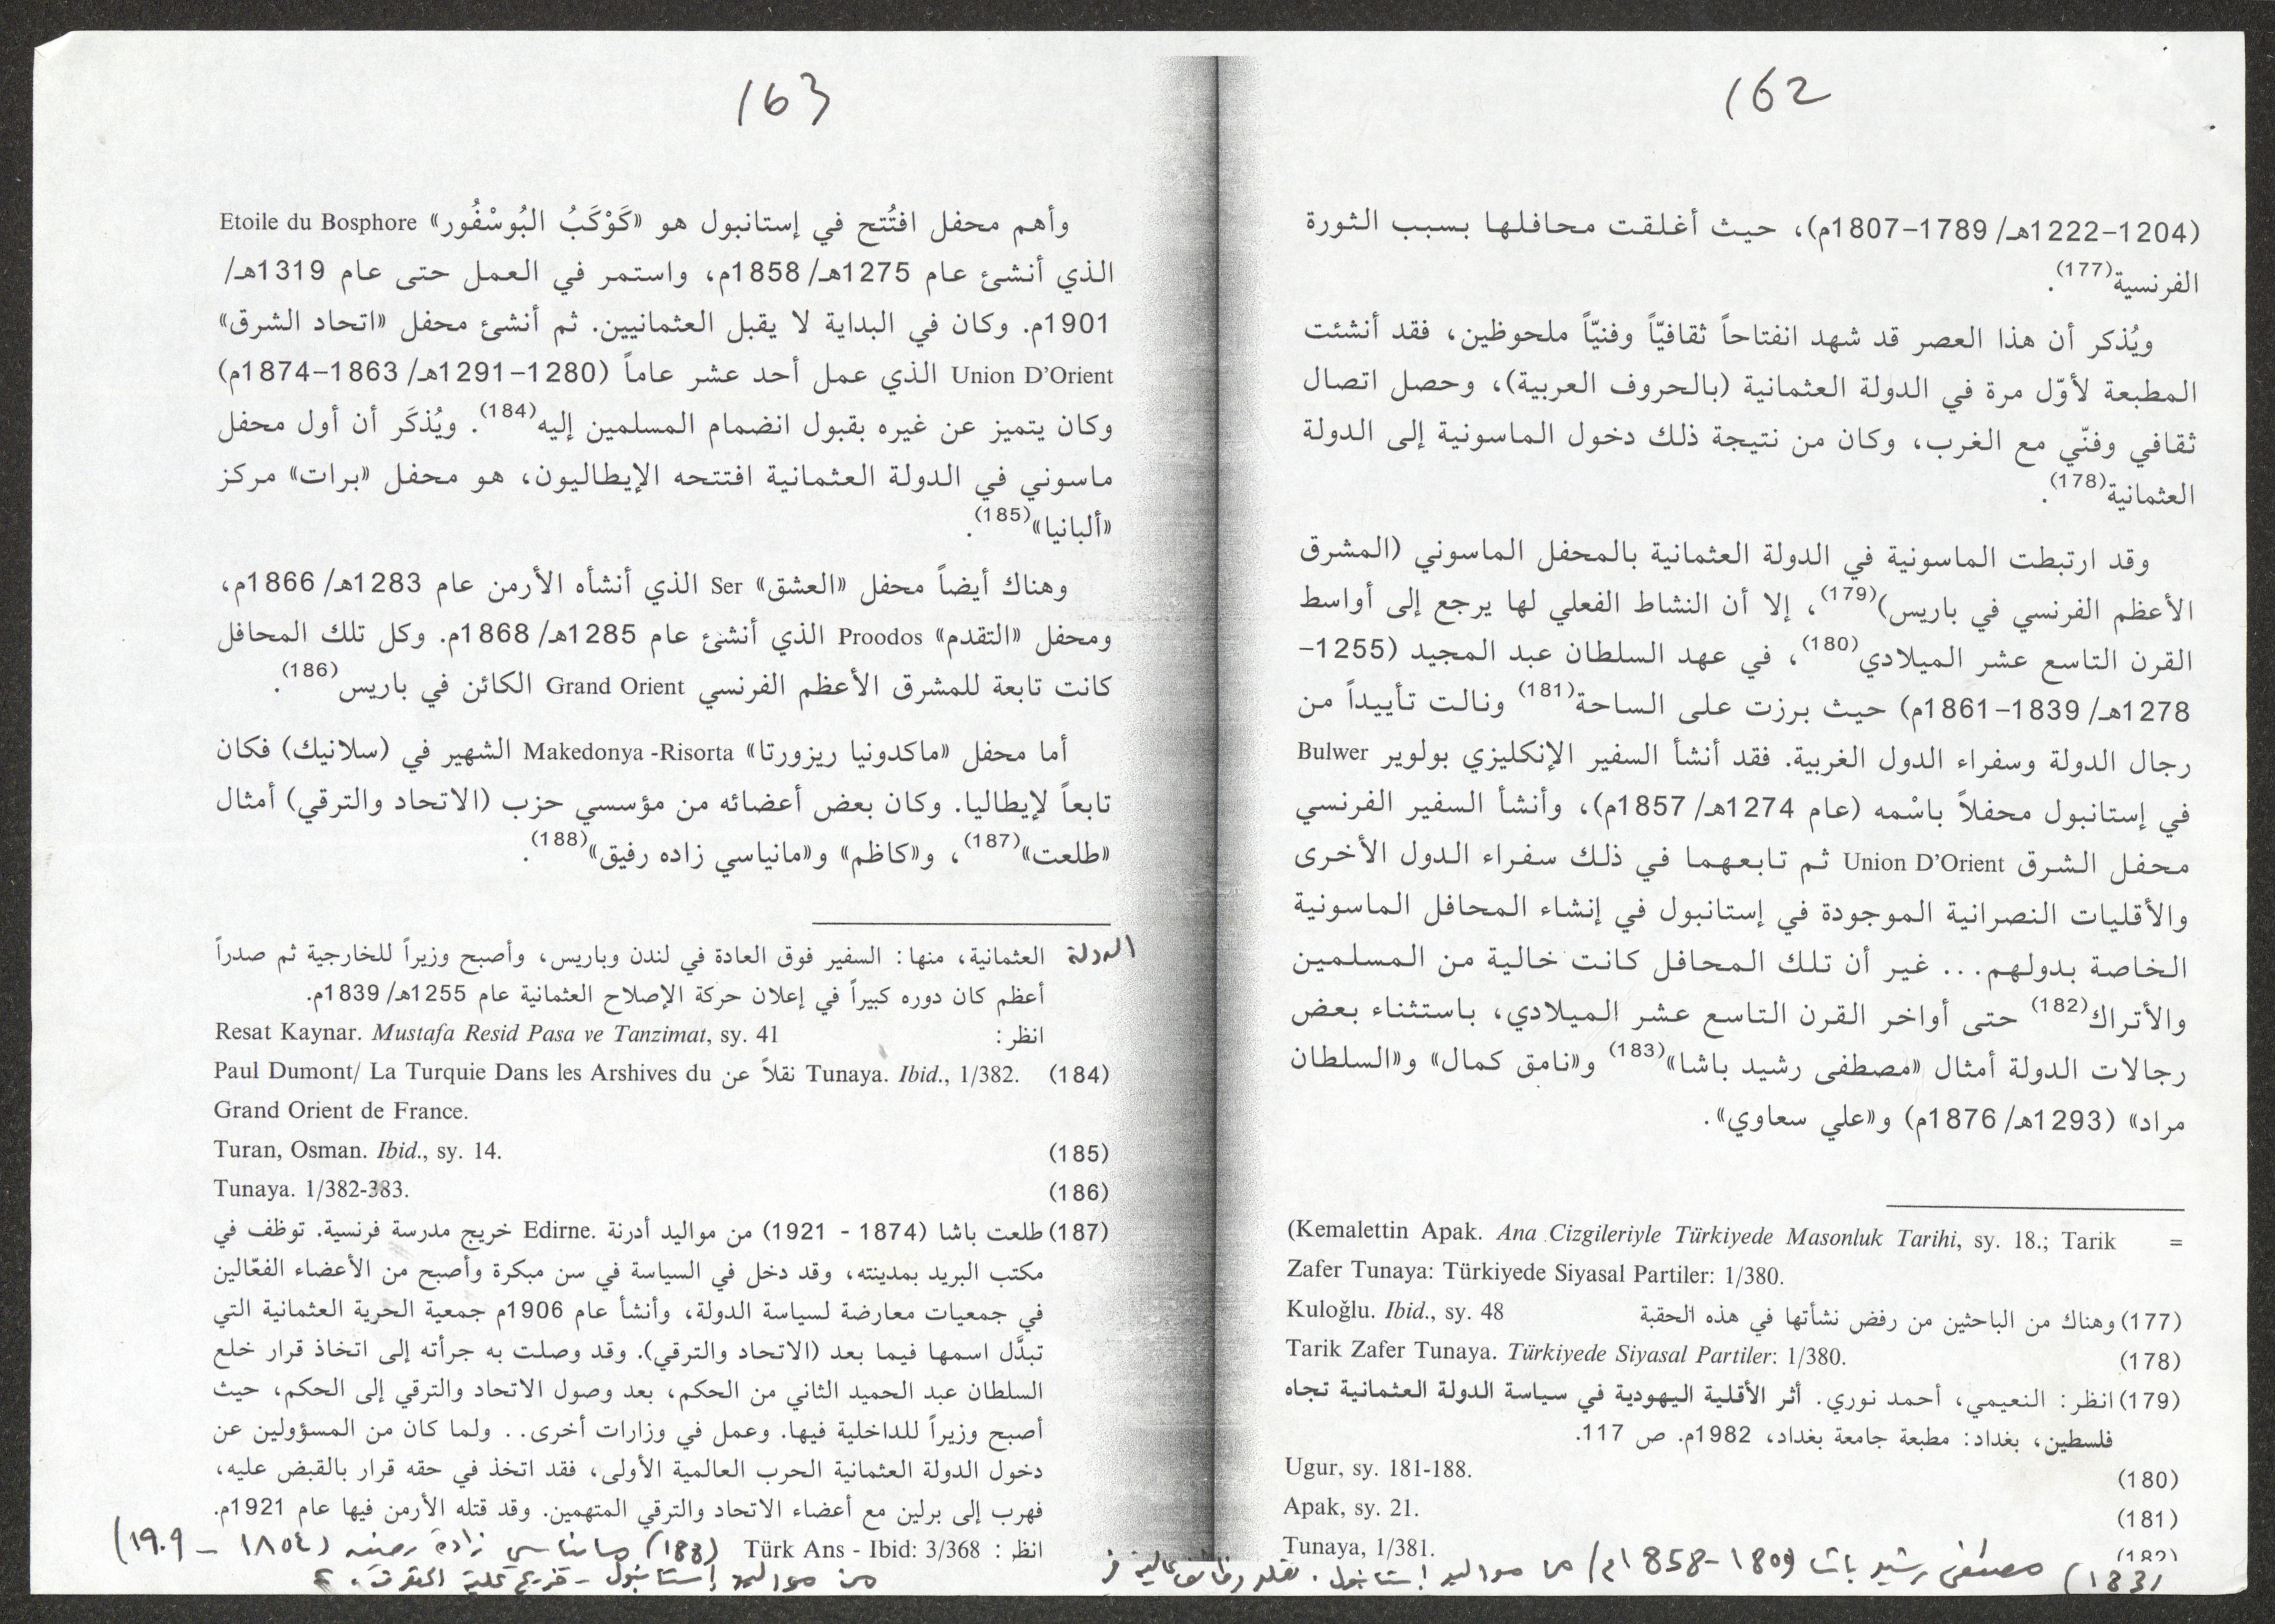 162
(1204–1222هـ/ 1789–1807م)، حيث أغلقت محافلها بسبب الثورة
الفرنسية(177).
ويُذكر أن هذا العصر قد شهد انفتاحاً ثقافيّاً وفنيّاً ملحوظين، فقد أنشئت
المطبعة لأوّل مرة في الدولة العثمانية (بالحروف العربية)، وحصل اتصال
ثقافي وفنّي مع الغرب، وكان من نتيجة ذلك دخول الماسونية إلى الدولة
العثمانية(178).
وقد ارتبطت الماسونية في الدولة العثمانية بالمحفل الماسوني (المشرق
الأعظم الفرنسي في باريس)(179)، إلا أن النشاط الفعلي لها يرجع إلى أواسط
القرن التاسع عشر الميلادي(180)، في عهد السلطان عبد المجيد (1255–
1278هـ/ 1839–1861م) حيث برزت على الساحة(181) ونالت تأييداً من
رجال الدولة وسفراء الدول الغربية. فقد أنشأ السفير الإنكليزي بولوير Bulwer
في إستانبول محفلاً باسْمه (عام 1274هـ/ 1857م)، وأنشأ السفير الفرنسي
محفل الشرق Union D'Orient ثم تابعهما في ذلك سفراء الدول الأخرى
والأقليات النصرانية الموجودة في إستانبول في إنشاء المحافل الماسونية
الخاصة بدولهم... غير أن تلك المحافل كانت خالية من المسلمين
والأتراك(182) حتى أواخر القرن التاسع عشر الميلادي، باستثناء بعض
رجالات الدولة أمثال «مصطفى رشيد باشا»(183) و«نامق كمال» و«السلطان
مراد» (1293هـ/ 1876م) و«علي سعاوي».
= (Kemalettin Apak. Ana Cizgileriyle Türkiyede Masonluk Tarihi, sy. 18.; Tarik
Zafer Tunaya: Türkiyede Siyasal Partiler: 1/380.
(177) وهناك من الباحثين من رفض نشأتها في هذه الحقبة Kuloğlu. Ibid., sy. 48
(178) Tarik Zafer Tunaya. Türkiyede Siyasal Partiler: 1/380.
(179) انظر: النعيمي، أحمد نوري. أثر الأقلية اليهودية في سياسة الدولة العثمانية تجاه
فلسطين، بغداد: مطبعة جامعة بغداد، 1982م. ص 117.
(180) Ugur, sy. 181-188.
(181) Apak, sy. 21.
(182) Tunaya, 1/381.
(183) مصطفى رشيد باشا (1809-1858م) من مواليد استانبول. تقلد وظائف عالية في
163
وأهم محفل افتُتح في إستانبول هو «كَوْكَبُ البُوسْفُور» Etoile du Bosphore
الذي أنشئ عام 1275هـ/ 1858م، واستمر في العمل حتى عام 1319هـ/
1901م. وكان في البداية لا يقبل العثمانيين. ثم أنشئ محفل «اتحاد الشرق»
Union D'Orient الذي عمل أحد عشر عاماً (1280–1291هـ/ 1863–1874م)
وكان يتميز عن غيره بقبول انضمام المسلمين إليه(184). ويُذكَر أن أول محفل
ماسوني في الدولة العثمانية افتتحه الإيطاليون، هو محفل «برات» مركز
«ألبانيا»(185).
وهناك أيضاً محفل «العشق» Ser الذي أنشأه الأرمن عام 1283هـ/ 1866م،
ومحفل «التقدم» Proodos الذي أنشئ عام 1285هـ/ 1868م. وكل تلك المحافل
كانت تابعة للمشرق الأعظم الفرنسي Grand Orient الكائن في باريس(186).
أما محفل «ماكدونيا ريزورتا» Makedonya -Risorta الشهير في (سلانيك) فكان
تابعاً لإيطاليا. وكان بعض أعضائه من مؤسسي حزب (الاتحاد والترقي) أمثال
«طلعت»(187)، و«كاظم» و«مانياسي زاده رفيق»(188).
الدولة العثمانية، منها: السفير فوق العادة في لندن وباريس، وأصبح وزيراً للخارجية ثم صدراً
أعظم كان دوره كبيراً في إعلان حركة الإصلاح العثمانية عام 1255هـ/ 1839م.
انظر: Resat Kaynar. Mustafa Resid Pasa ve Tanzimat, sy. 41
(184) Paul Dumont/ La Turquie Dans les Arshives du نقلاً عن Tunaya. Ibid., 1/382.
Grand Orient de France.
(185) Turan, Osman. Ibid., sy. 14.
(186) Tunaya. 1/382-383.
(187) طلعت باشا (1874 - 1921) من مواليد أدرنة Edirne. خريج مدرسة فرنسية. توظف في
مكتب البريد بمدينته، وقد دخل في السياسة في سن مبكرة وأصبح من الأعضاء الفعّالين
في جمعيات معارضة لسياسة الدولة، وأنشأ عام 1906م جمعية الحرية العثمانية التي
تبدَّل اسمها فيما بعد (الاتحاد والترقي). وقد وصلت به جرأته إلى اتخاذ قرار خلع
السلطان عبد الحميد الثاني من الحكم، بعد وصول الاتحاد والترقي إلى الحكم، حيث
أصبح وزيراً للداخلية فيها. وعمل في وزارات أخرى.. ولما كان من المسؤولين عن
دخول الدولة العثمانية الحرب العالمية الأولى، فقد اتخذ في حقه قرار بالقبض عليه،
فهرب إلى برلين مع أعضاء الاتحاد والترقي المتهمين. وقد قتله الأرمن فيها عام 1921م.
انظر: Türk Ans - Ibid: 3/368 (188) مانياسي زادة رفيق (١٨٥٤ - ١٩٠٩)
من مواليد إستانبول - خريج كلية الحقوق.